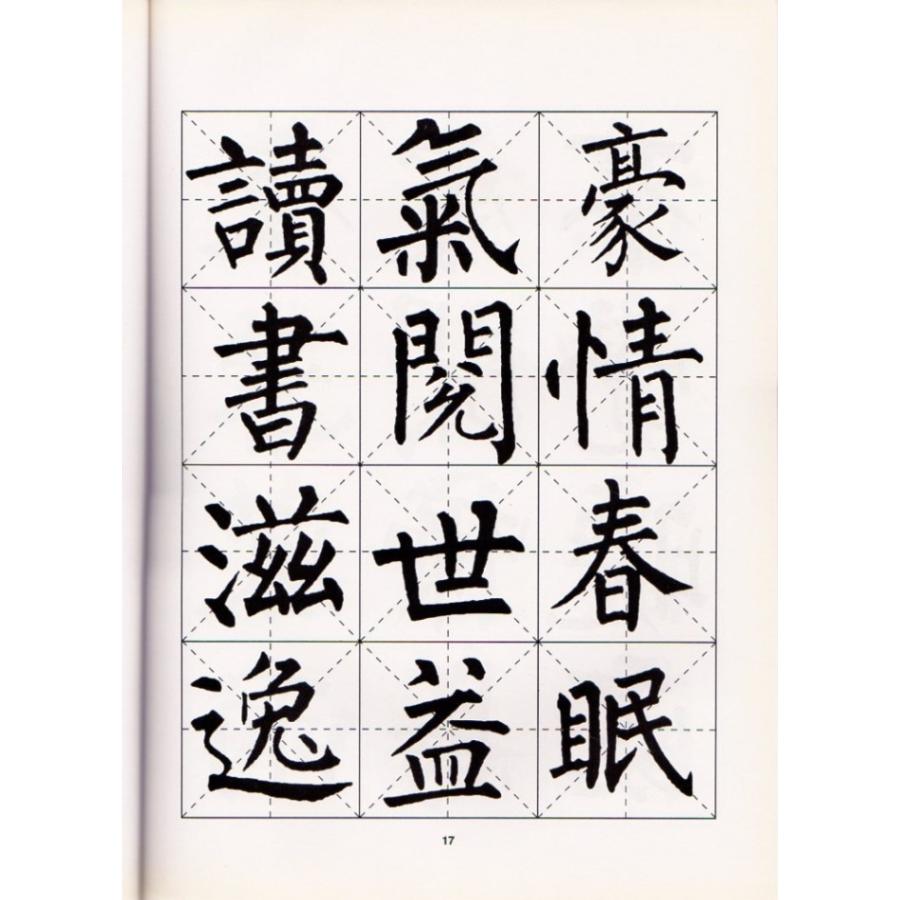 豪情春眠
氣閱世益
讀書滋逸
17